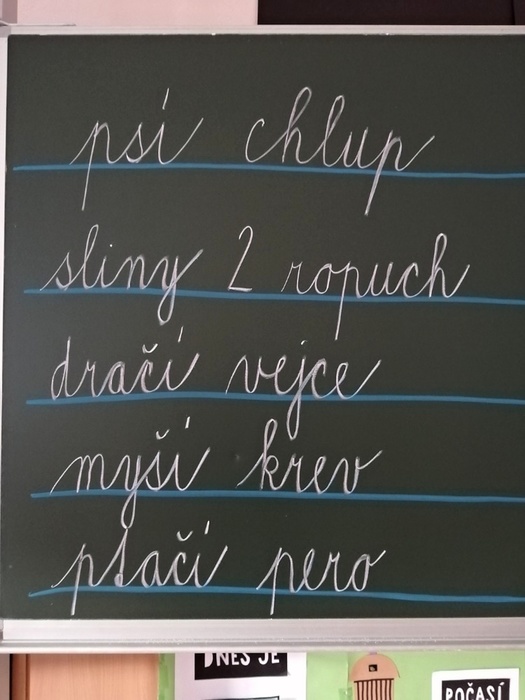 psí chlup
sliny 2 ropuch
dračí vejce
myší krev
ptačí pero
DNES JE
POČASÍ